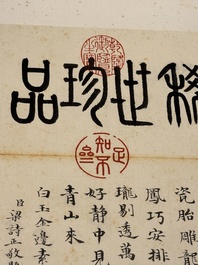 稀世珍品
瓷胎雕龍
鳳巧安排
瓏剔透萬
好静中見
青山來
白玉金邊素
臣梁詩正敬